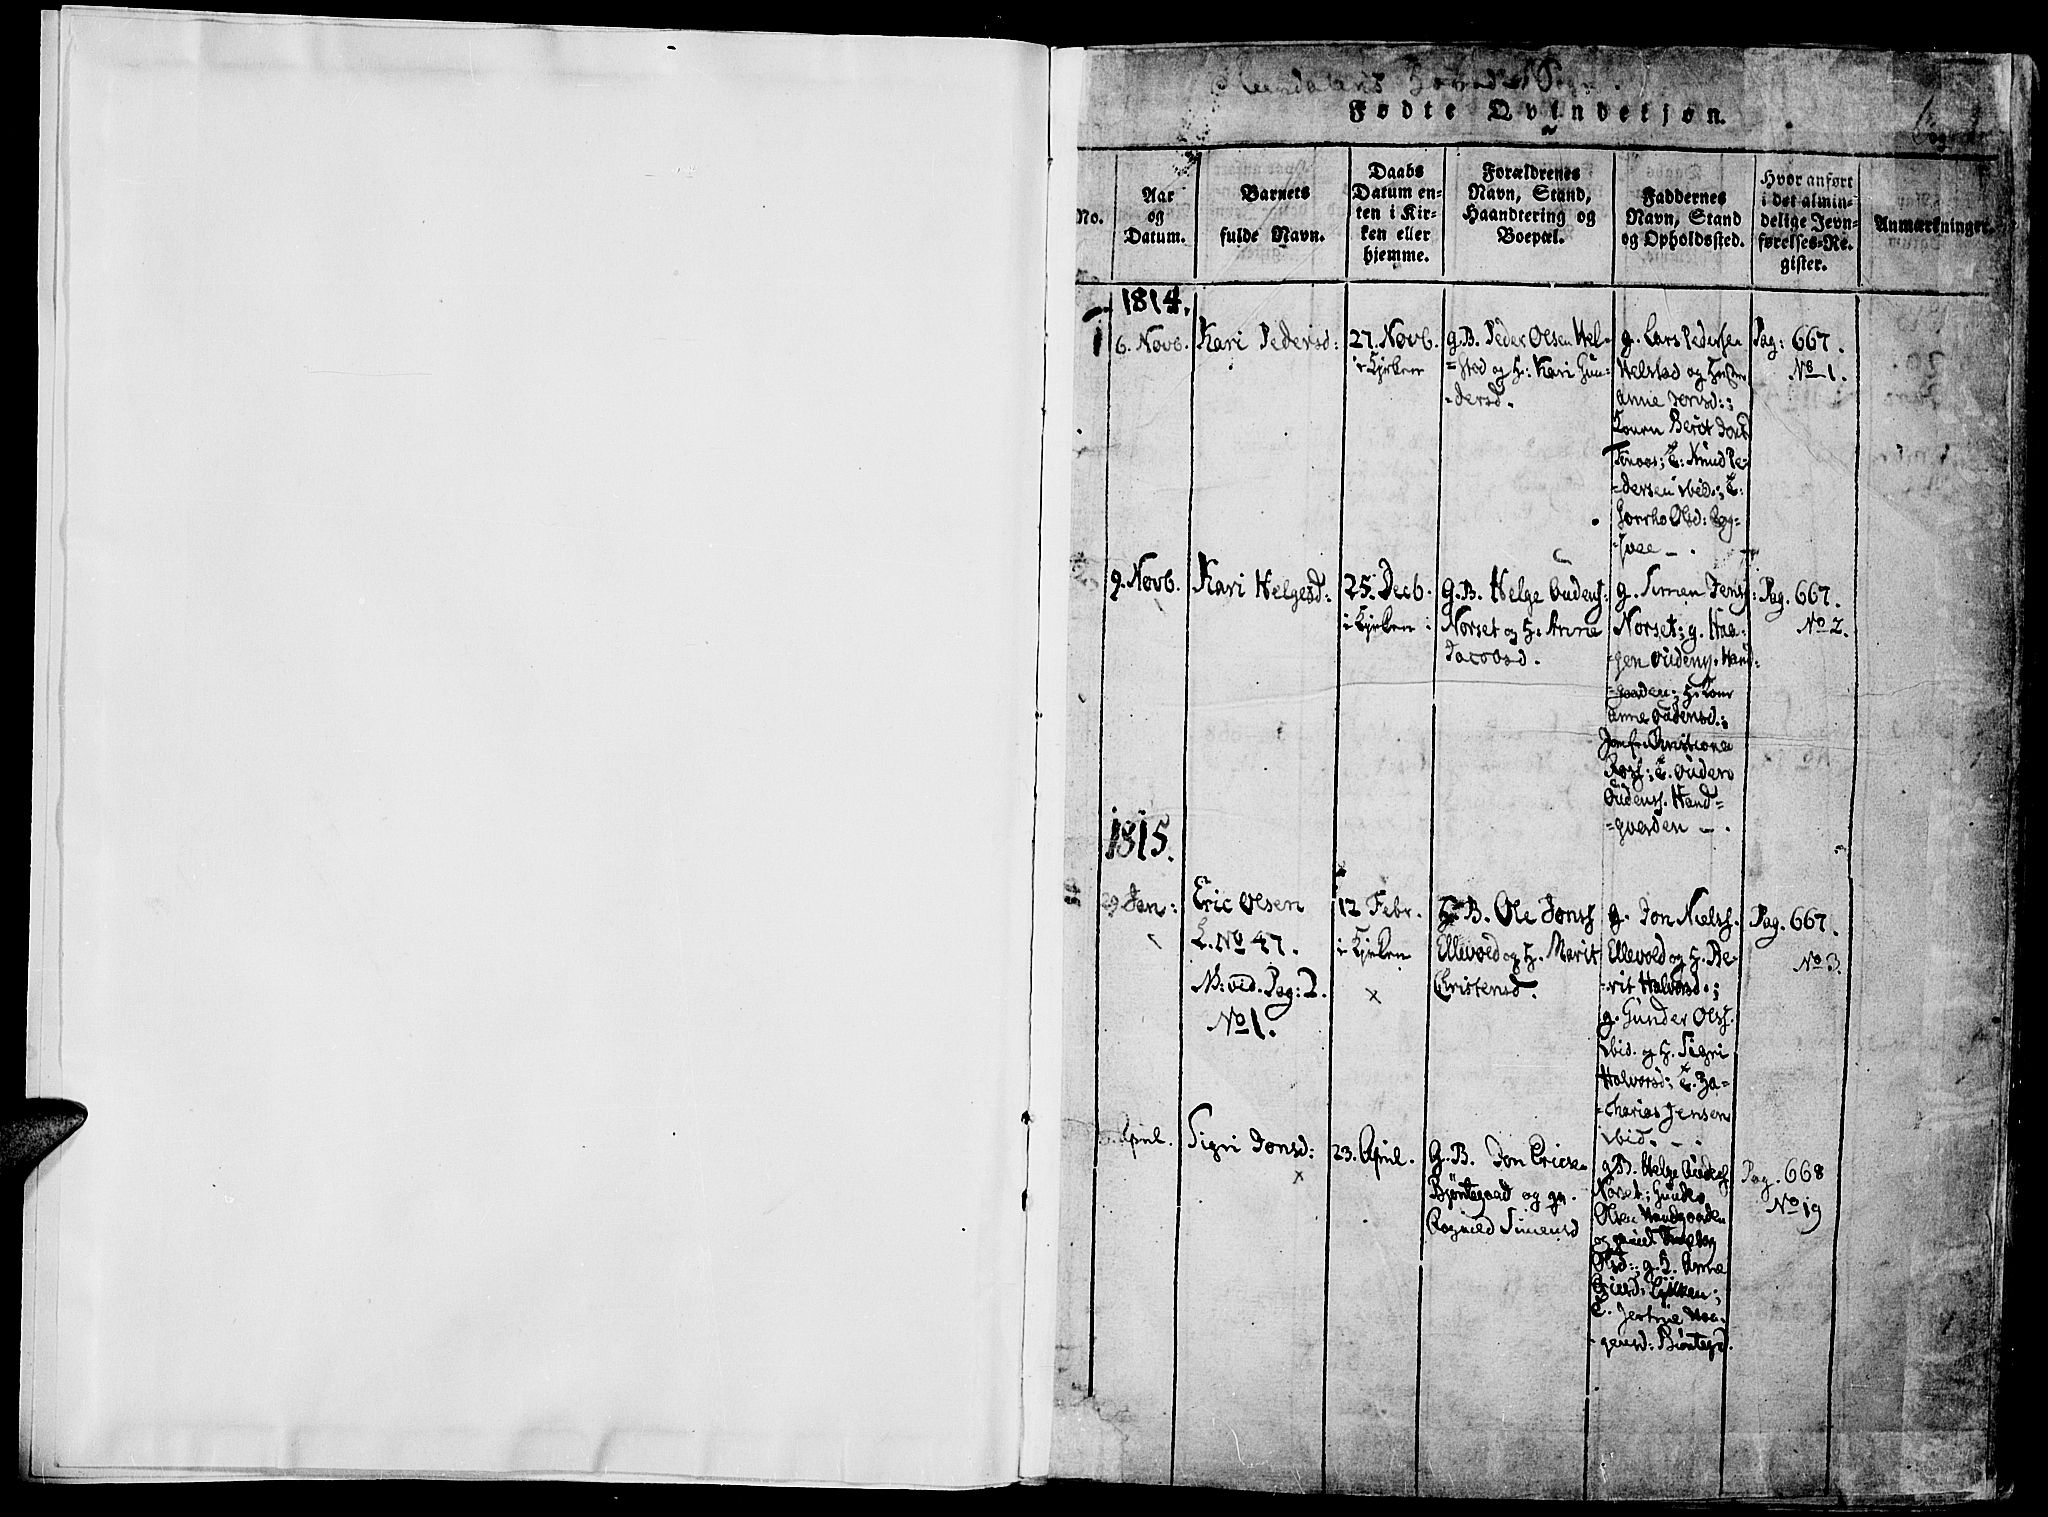 Fødte Qvindekjøn.
No.
Aar
og
Datum.
Barnets
fulde Navn.
Daabs
Datum en-
ten i Kir-
ken eller
hjemme.
Forældrenes
Navn, Stand,
Haandtering og
Boepæl.
Faddernes
Navn, Stand
og Opholdssted.
Hvor anført
i det almin-
delige Jevn-
førelses-Re-
gister.
Anmærkninger.
1814.
6. Novb.
Kari Pedersd:
27. Novb.
i Kjrken
g. B. Peder Olsen Hel-
=stad og H: Kari Gun-
=dersd.
g. Lars Pedersen
Helstad og
Anne Jensd:;
Konen Berit
Knud Pe-
=dersen ibid.; E.
Olsd:
Pag: 667.
No 1.
9. Novb.
Kari Helgesd:
25. Decb.
i Kjrken
G. B. Helge Oudens:
Norset og H. Anne
Jacobsd.
g. Simen Jens:
Norset; g. Haa-
=gen Oudens.
=gaarden; H. Kone
Anne Oudensd.;
Jomfr. Christiane
E. Ouden
Oudens. Hand=
=gaarden - .
Pag. 667.
No 2.
1815.
29 Jan:
Eric Olsen
L. No 47.
NB: vid. Pag: 2.
No 1.
12 Febr.
i Kjrken
x
G. B. Ole Jons
Ellevold og H. Marit
Christensd.
g. Jon Niels.
Ellevold og H. Be-
=rit Halvorsd.;
g. Gunder Ols.
ibid. og H. Sigri
Halvorsd; E. Za-
=charias Jensen
ibid. - .
Pag. 667.
No 3.
April.
Sigri Jonsd:
x
23. April.
G. B. Jon Ericse.
Bjöntegaard og
Ragnild Simensd
g B. Helge Oudens
Noset; Gunder
Olsen Handgaarden
og
Olsd:; g. H. Anne
Ericsd. Lykken;
E. Jertrue Haa-
=gensd: Biöntegd.
Pag. 668
No 19